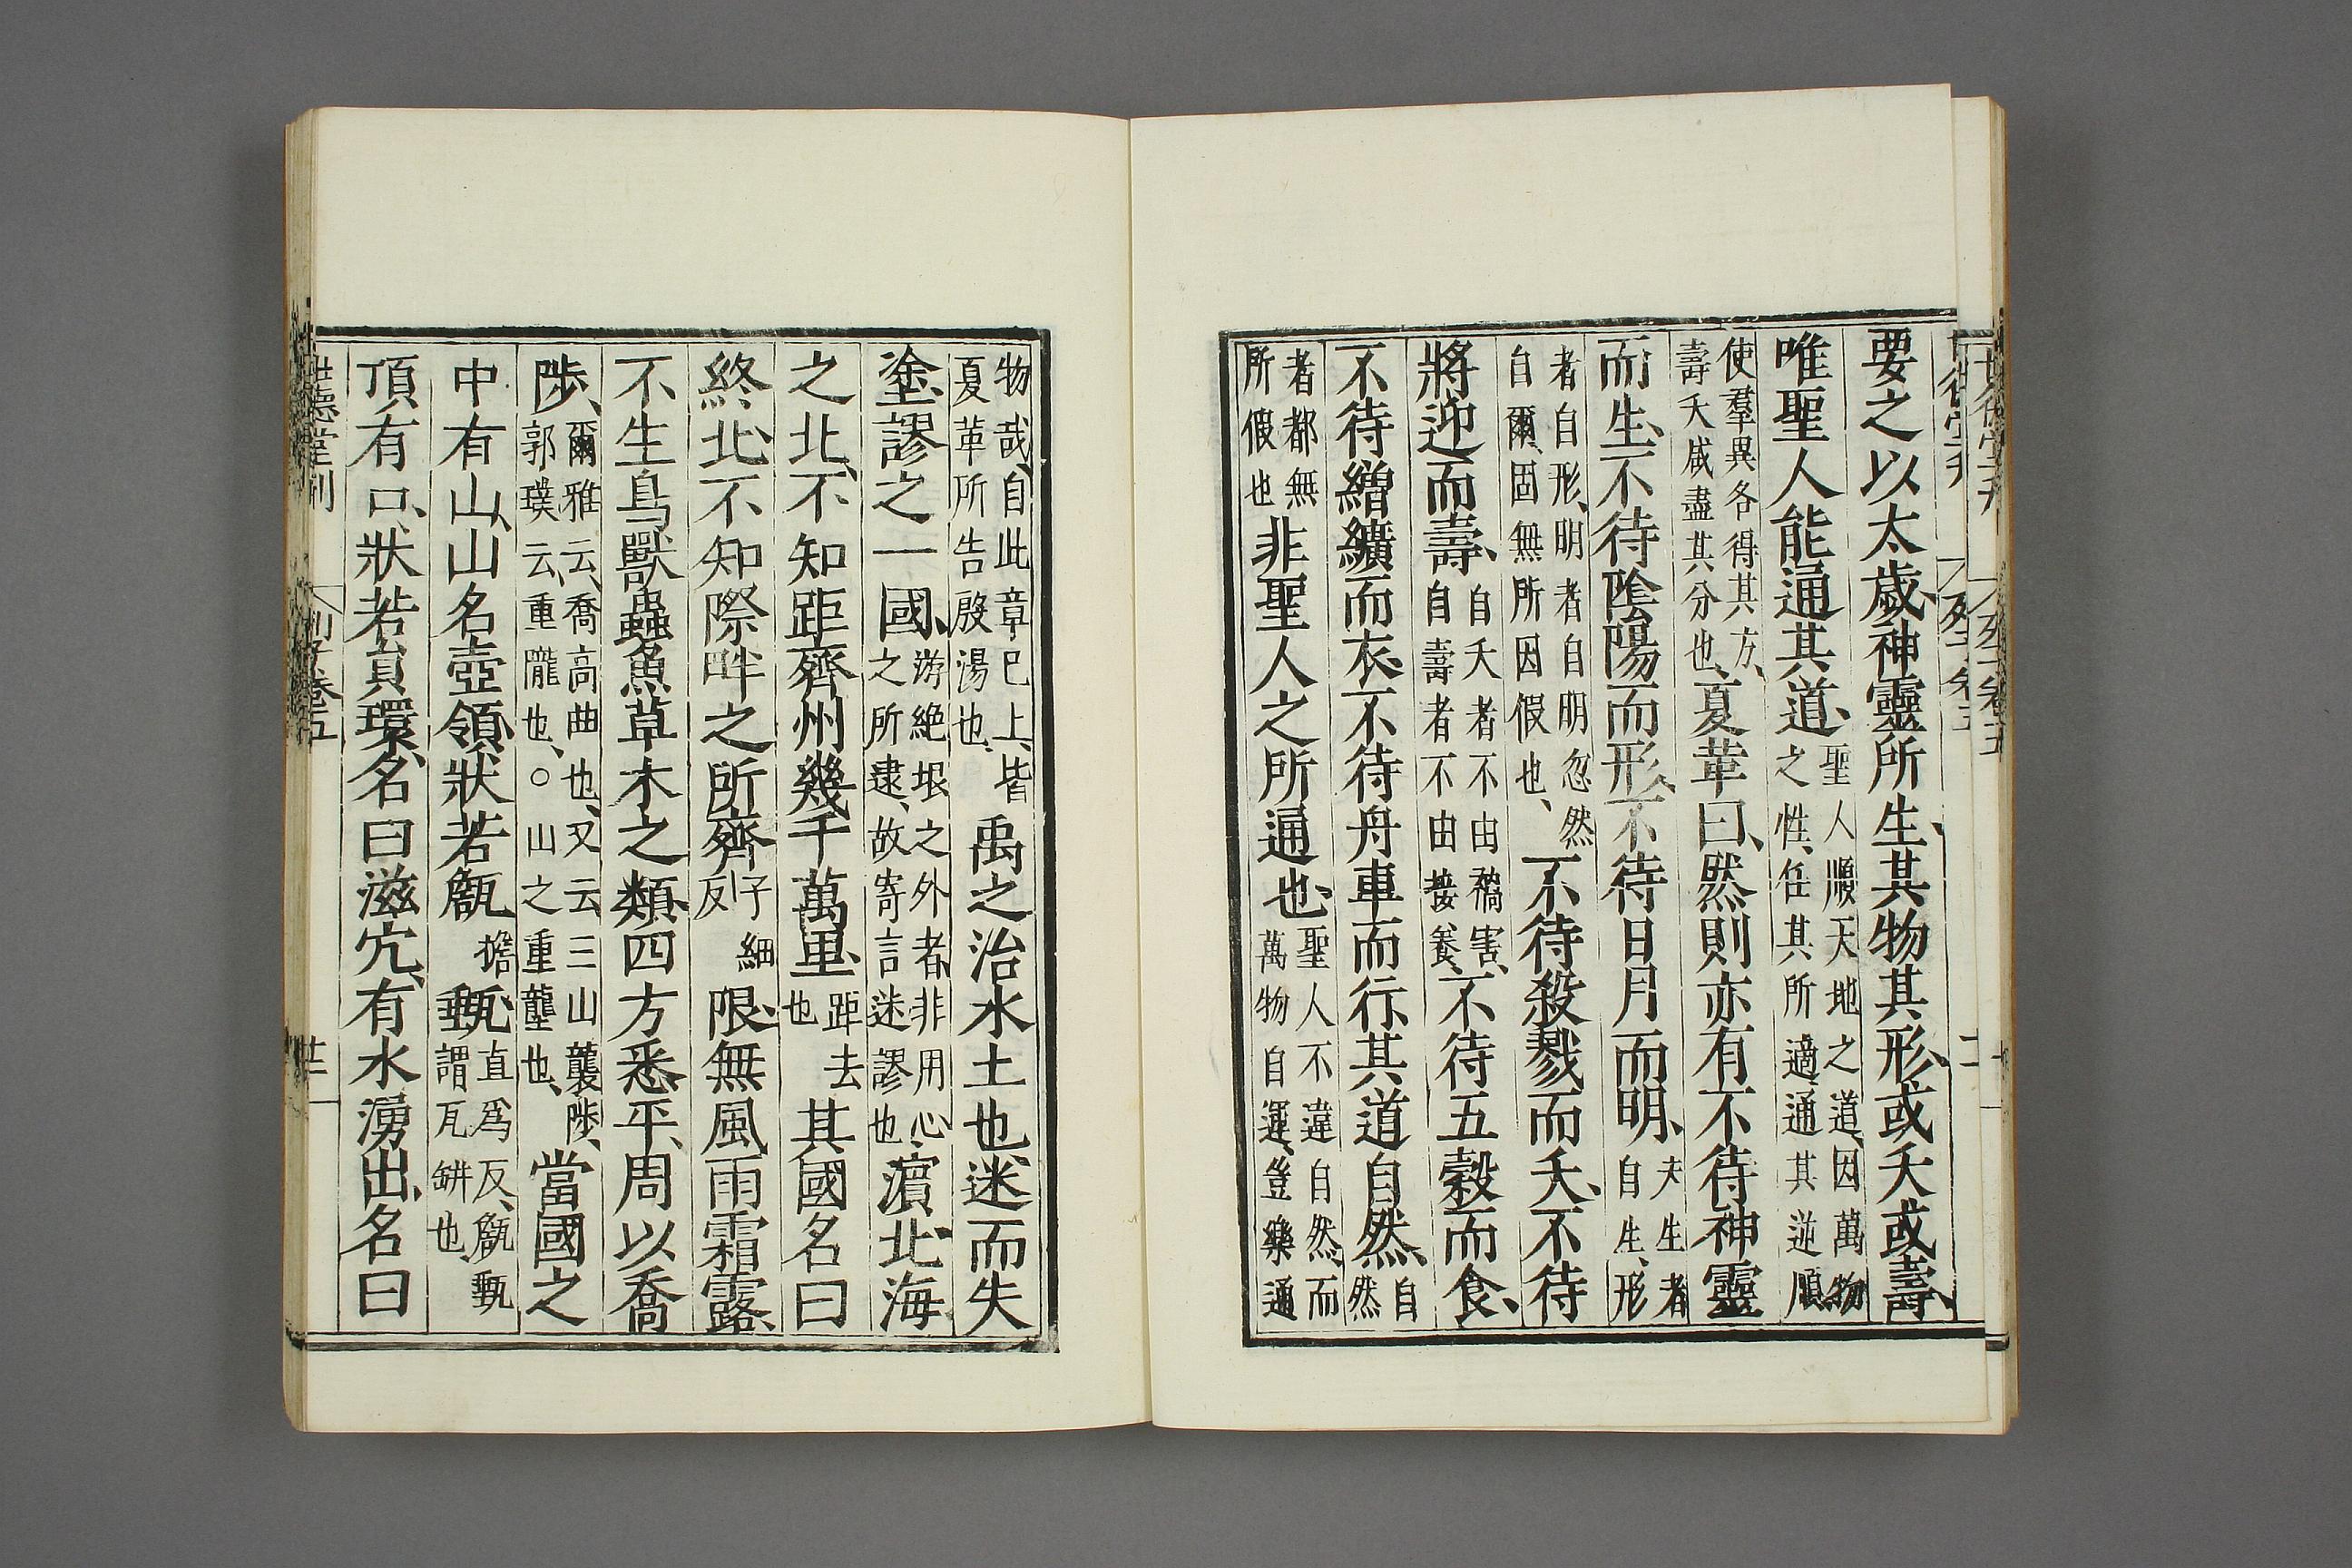 要之以太歲、神靈所生、其物其形、或夭或壽、
唯聖人能通其道、聖人順天地之道、因萬物之性、任其所適、通其逆順、
使羣異各得其方、壽夭咸盡其分也、夏革曰、然則亦有不待神靈
而生、不待陰陽而形、不待日月而明、夫生者自生、形
者自形、明者自明、忽然自爾、固無所因假也、不待殺戮而夭、不待
將迎而壽、自夭者不由禍害、自壽者不由接養、不待五穀而食、
不待繒纊而衣、不待舟車而行、其道自然、自然
者都無所假也非聖人之所通也、聖人不違自然、而萬物自運、豈樂通
物哉、自此章已上、皆夏革所告殷湯也、禹之治水土也、迷而失
塗、謬之一國、游絶垠之外者、非用心之所逮、故寄言迷謬也、濵北海
之北、不知距齊州幾千萬里、距去也其國名曰
終北、不知際畔之所齊子細反限、無風雨霜露、
不生鳥獸蟲魚草木之類、四方悉平、周以喬
陟、爾雅云、喬高曲也、又云三山襲陟、郭璞云、重隴也、○山之重壟也、當國之
中有山、山名壺領、狀若甔擔甀直爲反、甔甀謂瓦缾也
頂有口、狀若員環、名曰滋穴、有水湧出、名曰
世德堂刊
列子卷五